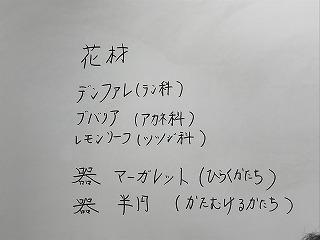 花材
デンファレ(ラン科)
ブバリア(アカネ科)
レモンリーフ(ツツジ科)
器 マーガレット(ひらくかたち)
器 半円 (かたむけるかたち)